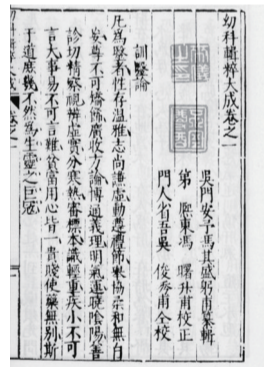 幼科輯粹大成卷之一
吳門安予馮其盛躬甫纂輯
第 熙東馮 曙升甫校正
門人省吾吳 俊秀甫仝校
訓醫論
凡爲醫者性存溫雅志尚謙虛動遵禮節舉協柔和無自
妄尊不可矯飾廣收方論博通義理明氣運曉陰陽善
診切精察視辨虛實分寒熱審標本識輕重疾小不可
言大事易不可言難貧富用心皆一貴賤使藥無別斯
于道庶幾不然爲生靈之巨寇